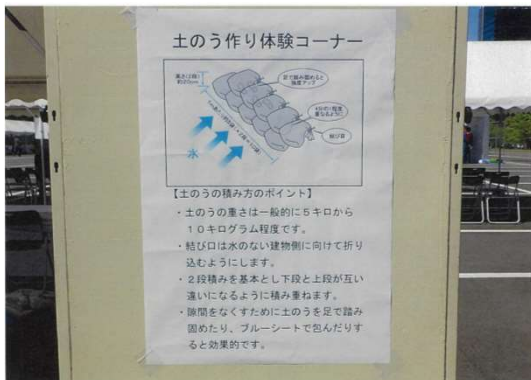 土のう作り体験コーナー
高さ(2段)
約20cm
足で踏み固めると
強度アップ
重なるように
結び目
水
【土のうの積み方のポイント】
・土のうの重さは一般的に５キロから
１０キログラム程度です。
・結び口は水のない建物側に向けて折り
込むようにします。
・２段積みを基本とし下段と上段が互い
違いになるように積み重ねます。
・隙間をなくすために土のうを足で踏み
固めたり、ブルーシートで包んだりす
ると効果的です。